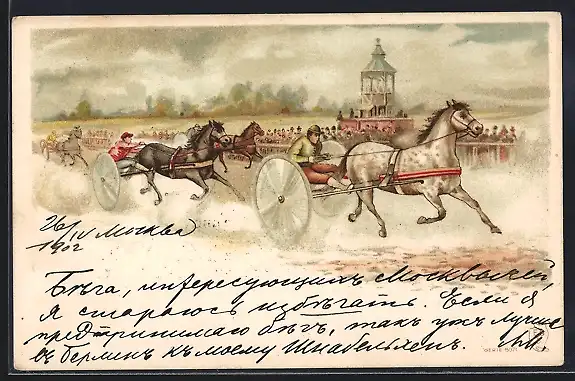 26/IV Москва
1902
Бѣга, интересующихъ Москвичей
я стараюсь избѣгать. Если я
предпринимаю бѣгъ, такъ ужъ лучше
въ Берлин къ моему Шнабельхен.